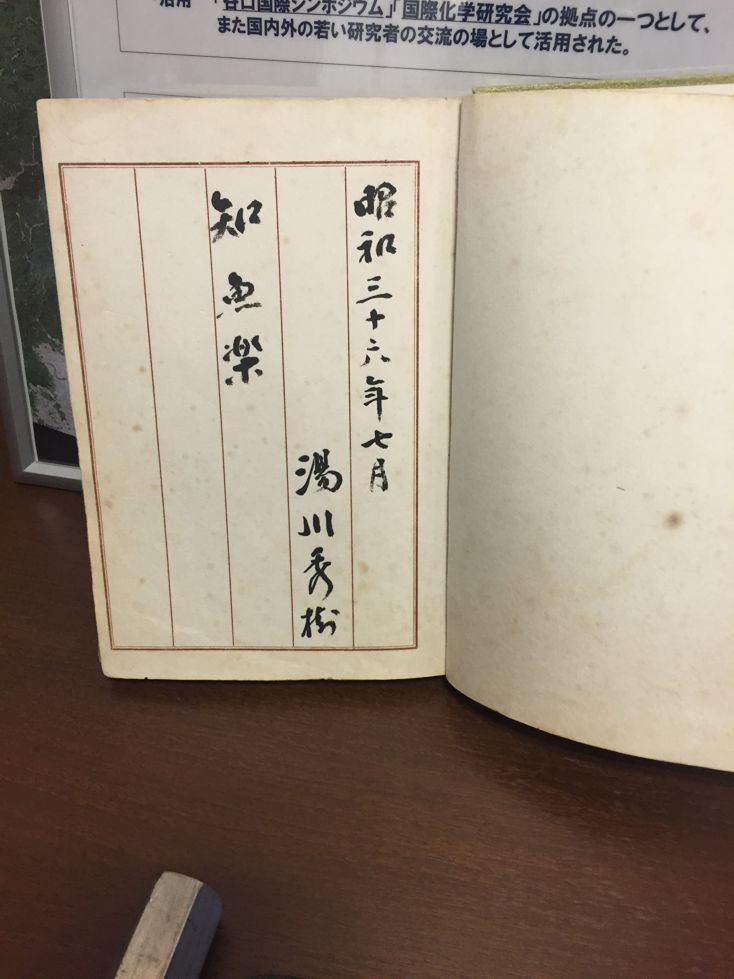 活用 「谷口国際シンポジウム」「国際化学研究会」の拠点の一つとして、
また国内外の若い研究者の交流の場として活用された。
昭和三十六年七月
湯川秀樹
知魚楽